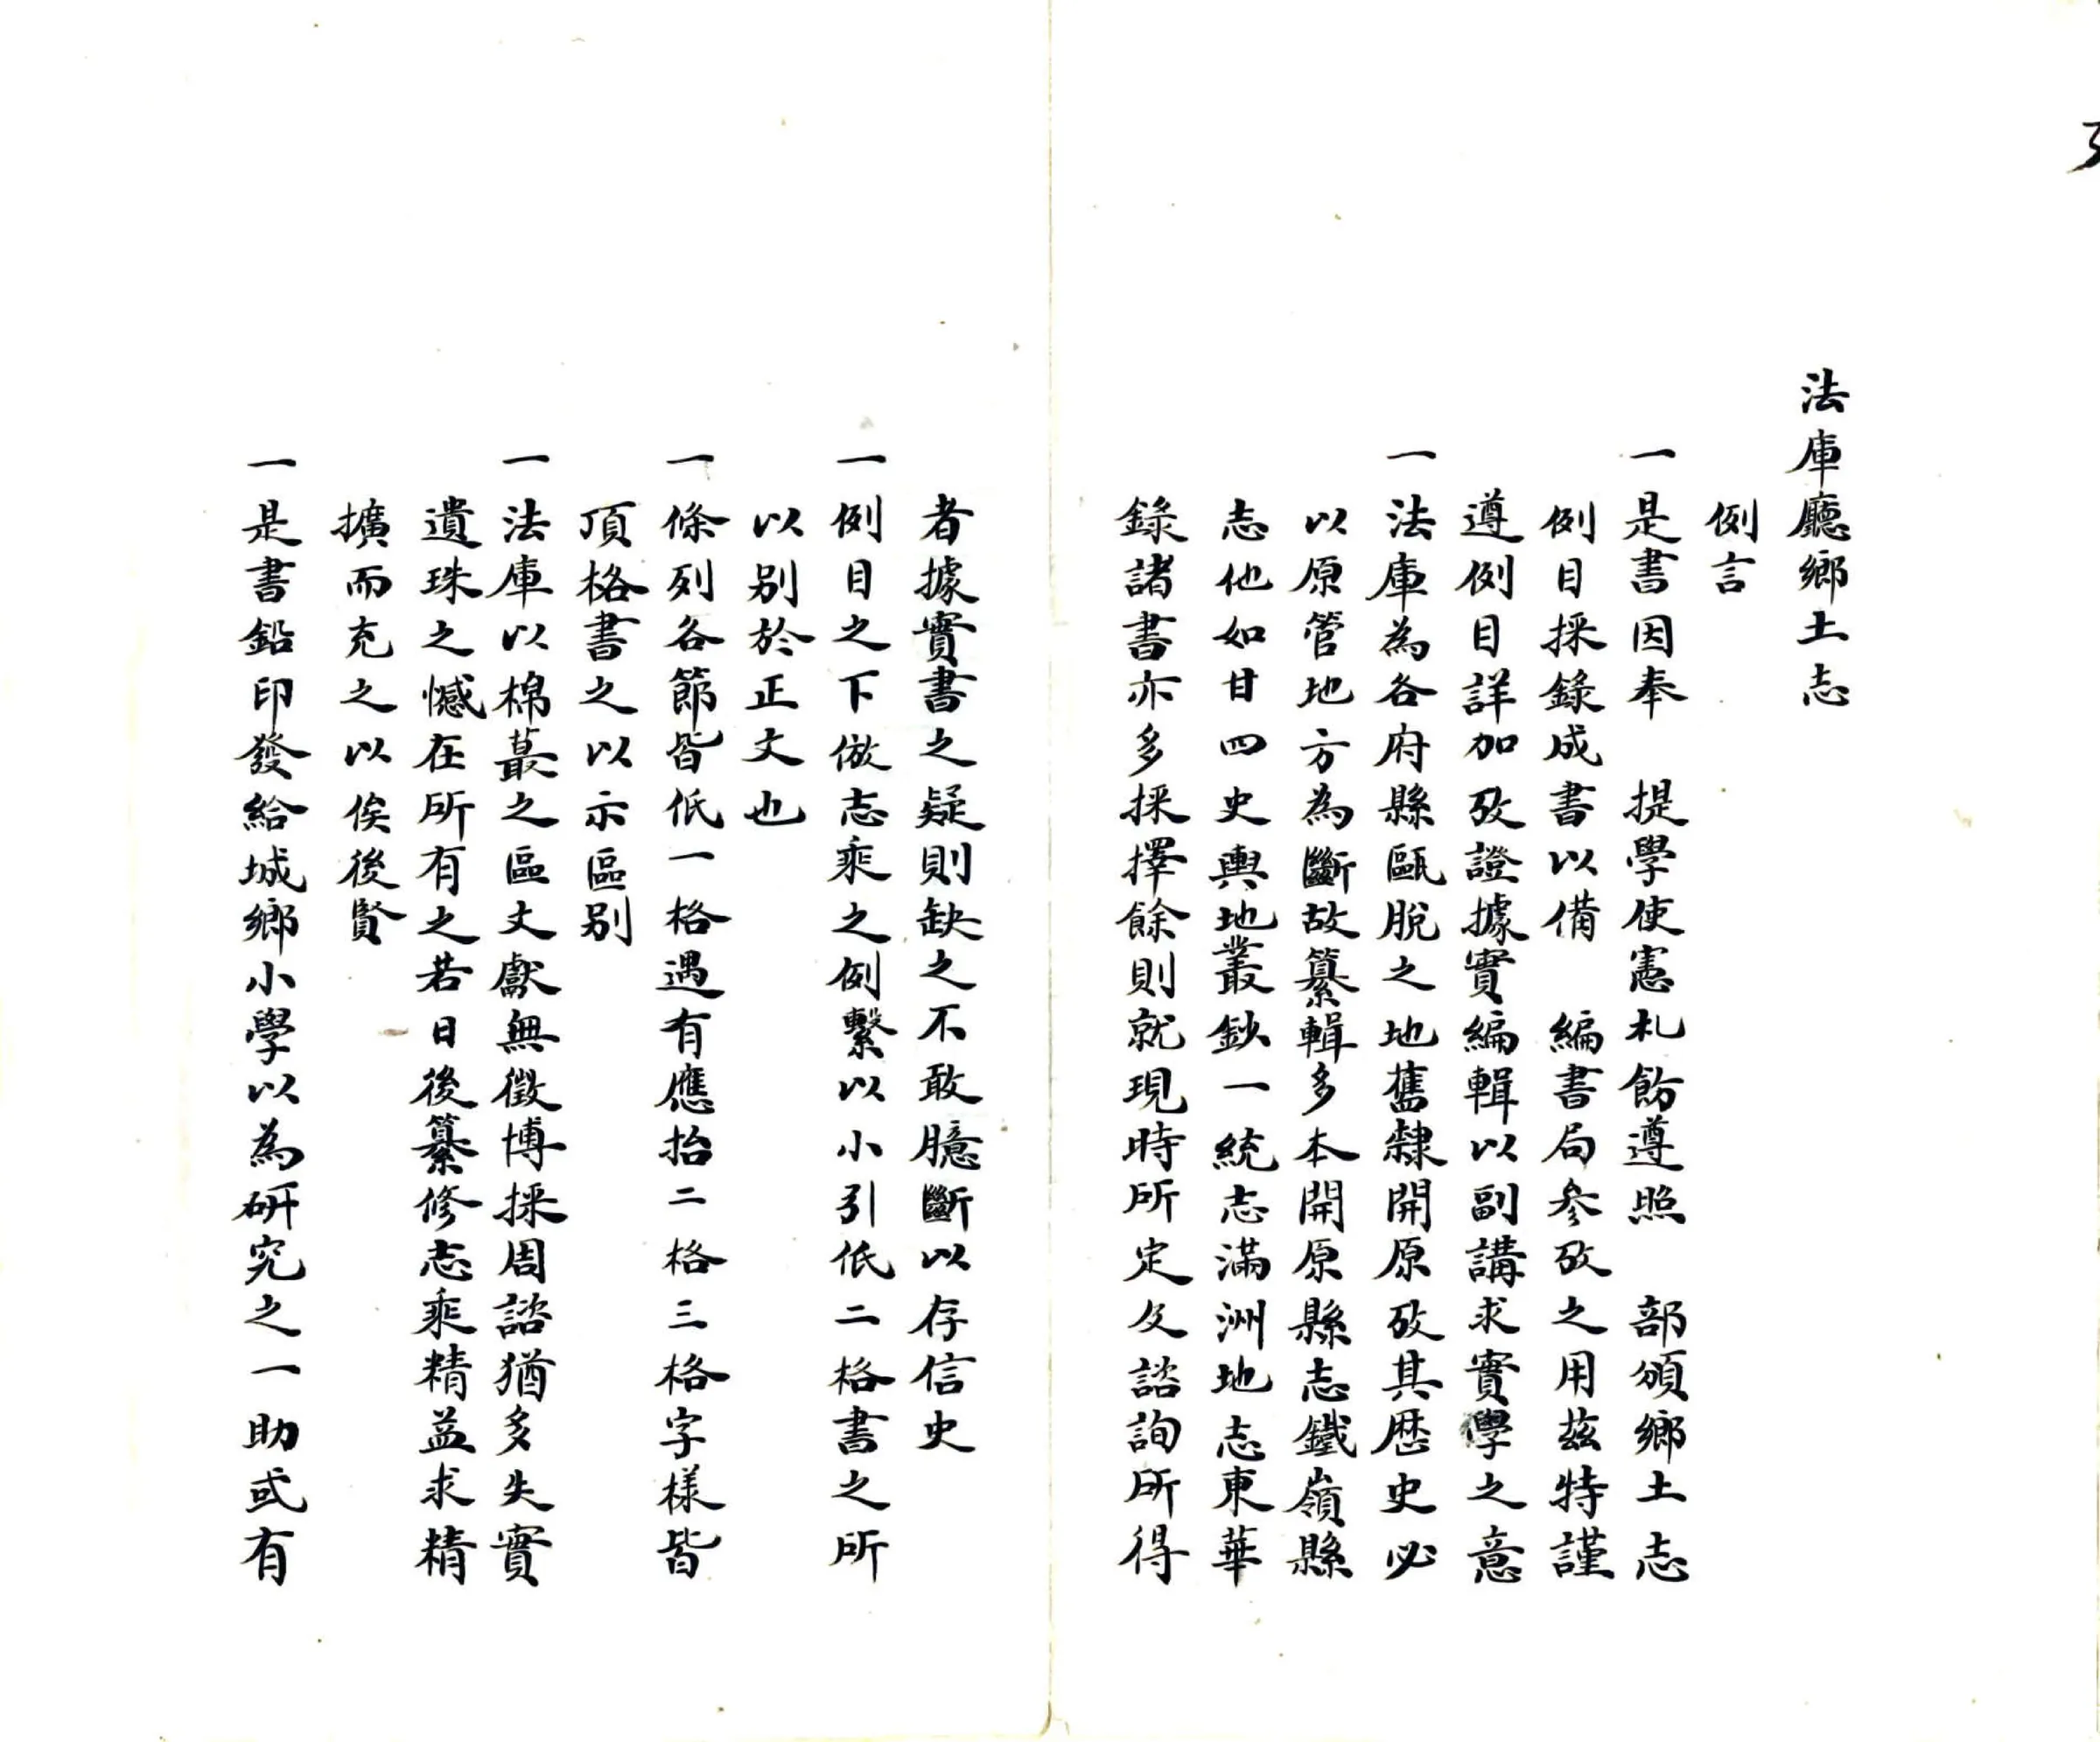 法庫廳鄉土志
例言
一是書因奉　提學使憲札飭遵照　部頒鄉土志
例目採錄成書以備　編書局参攷之用茲特謹
遵例目詳加攷證據實編輯以副講求實學之意
一法庫為各府縣甌脫之地舊隸開原攷其歷史必
以原管地方為斷故纂輯多本開原縣志鐵嶺縣
志他如廿四史輿地叢鈔一統志滿洲地志東華
錄諸書亦多採擇餘則就現時所定及諮詢所得
者據實書之疑則缺之不敢臆斷以存信史
一例目之下倣志乘之例繫以小引低二格書之所
以別於正文也
一條列各節皆低一格遇有應抬二格三格字樣皆
頂格書之以示區別
一法庫以棉蕞之區文獻無徵博採周諮猶多失實
遺珠之憾在所有之若日後纂修志乘精益求精
擴而充之以俟後賢
一是書鉛印發給城鄉小學以為研究之一助或有